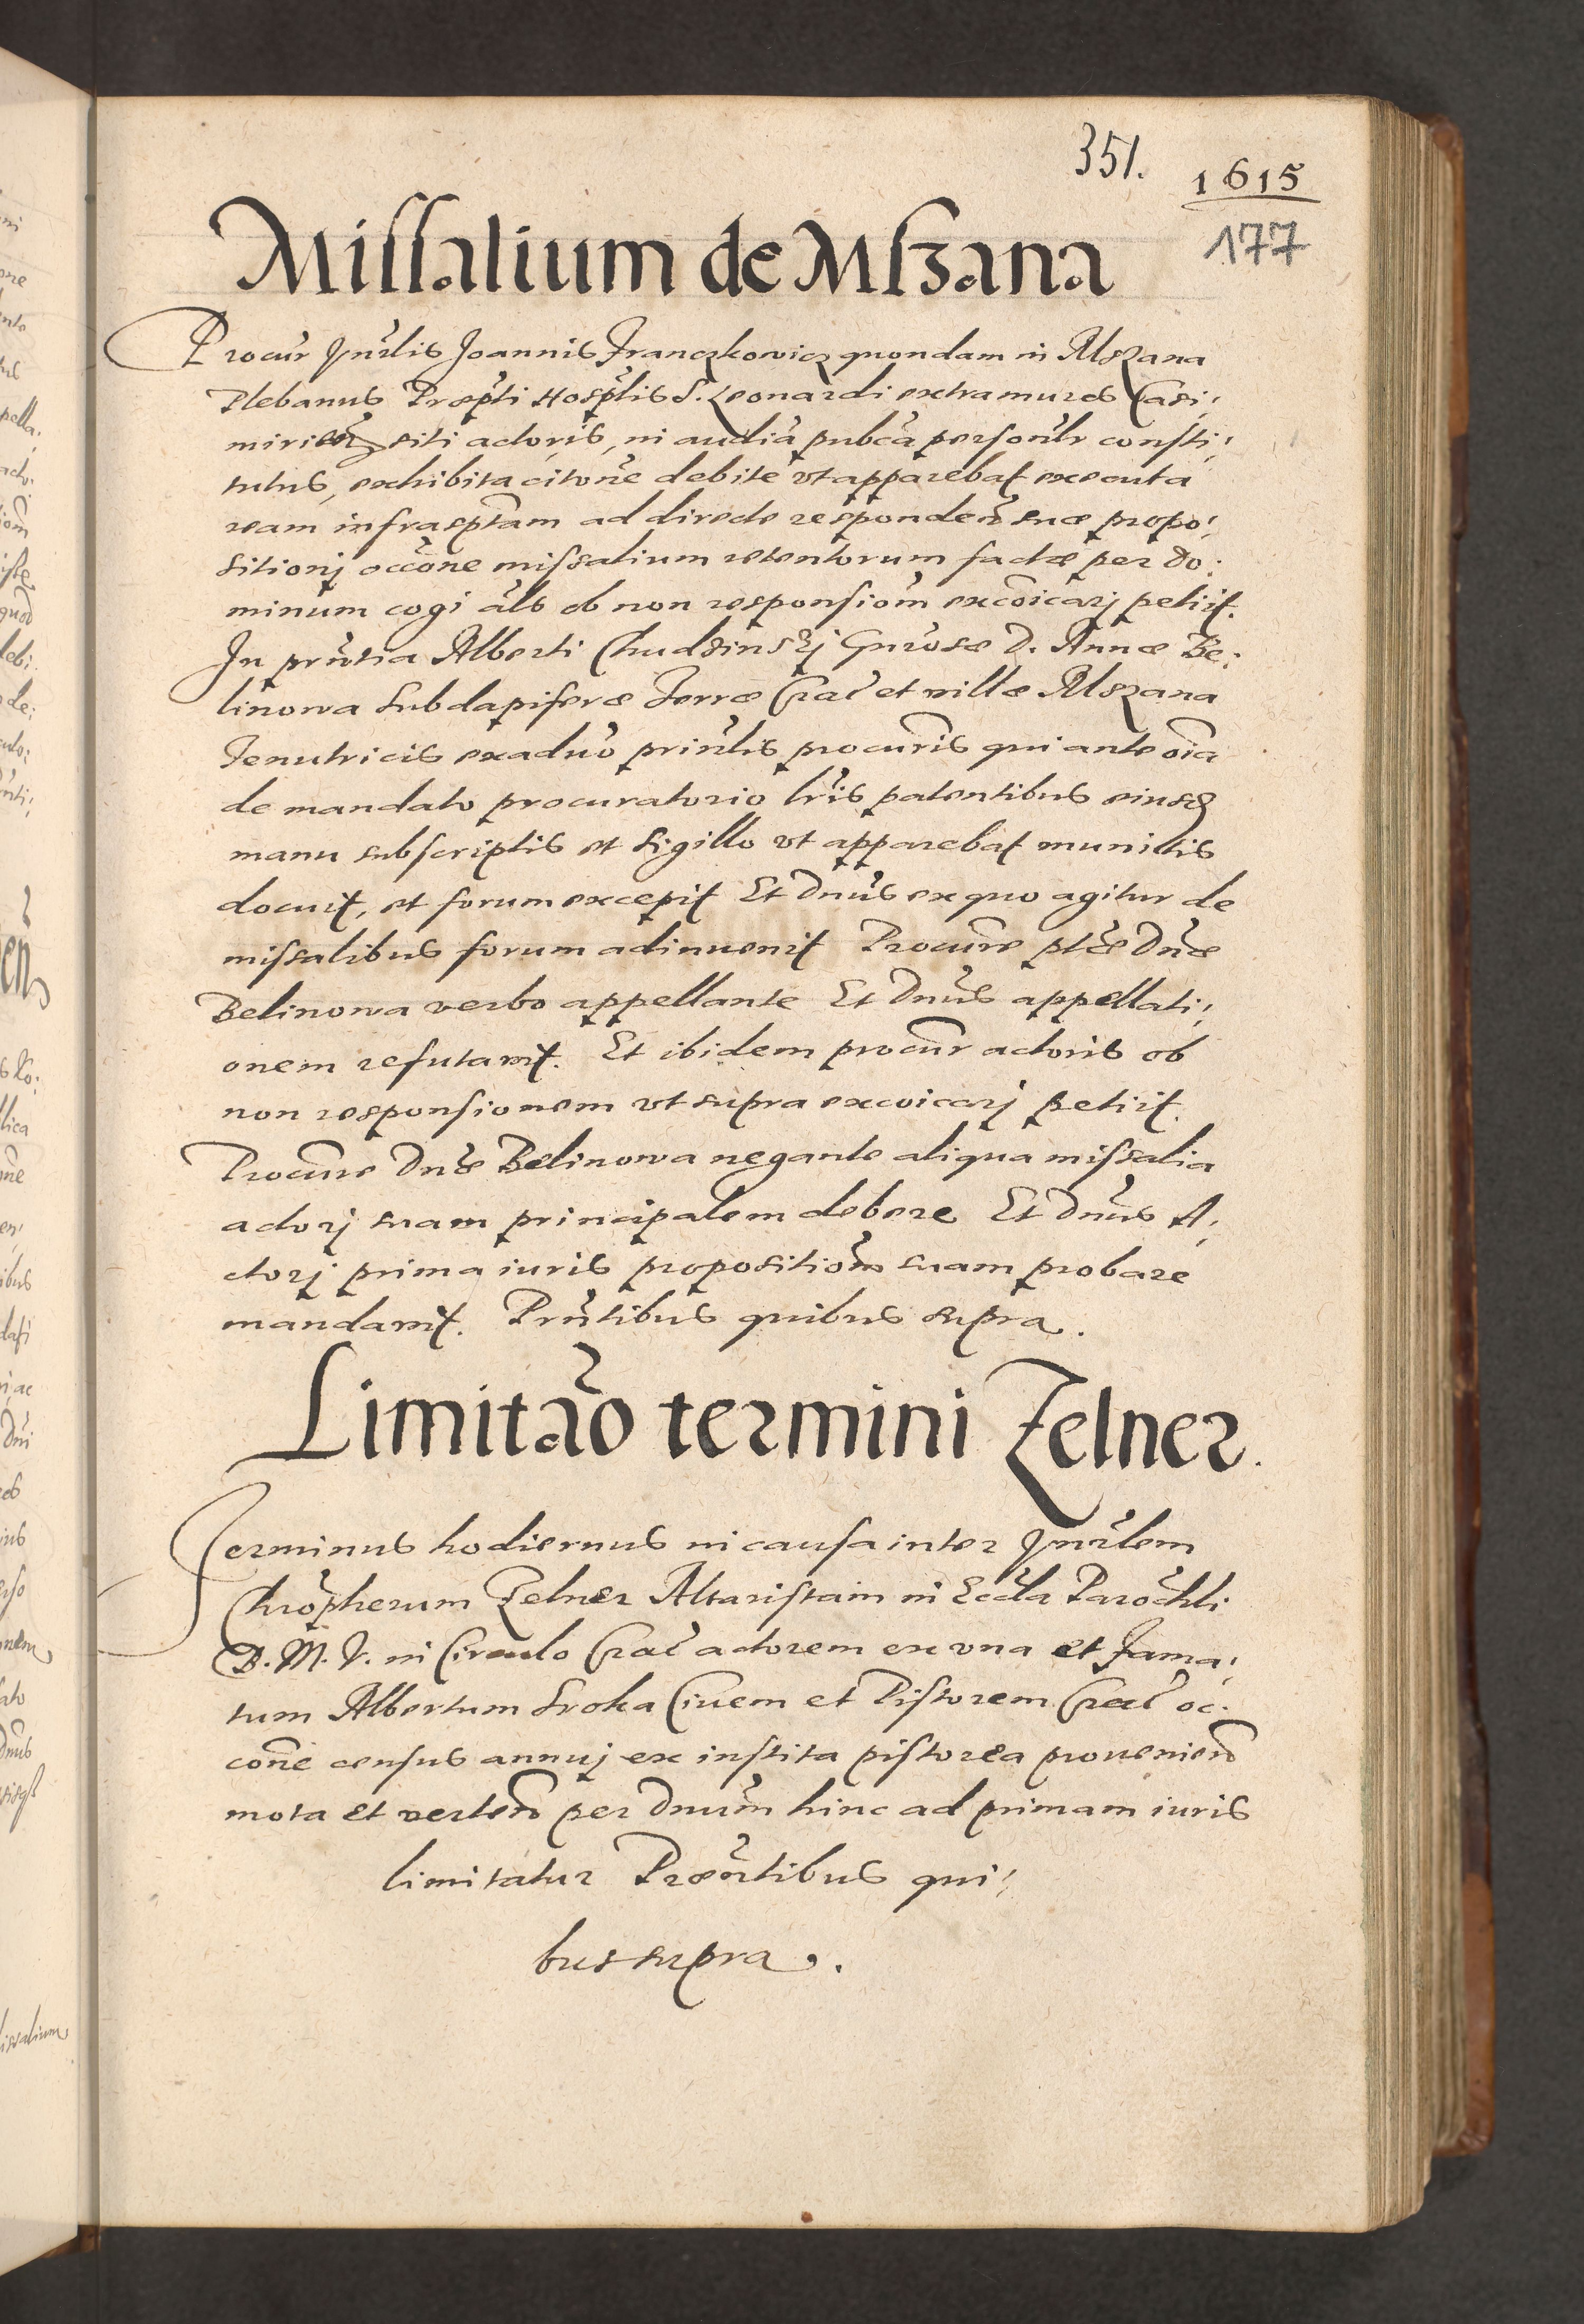 351.
1615
177
Missalium de Mszana
Procur hnrlis Joannis Franczkowicz quondam in Mszana
Plebanus Praepti Hosptlis S. Leonardi extra muros Casi:
mirien siti actoris, in audia pubca personlr consti:
tutus, exhibita citone debite vt apparebat executa
ream infrasptam ad directe responden suae propo:
sitionj occone missalium retentorum factae per Do:
minum cogi als ob non responsiom excoicarj petiit.
In prntia Alberti Chudzinskj Gnrosae D. Annae Be:
linowa Subdapiferae Terrae Crac et villae Mszana
Tenutricis ex aduo prinlis procuris qui ante oia
de mandato procuratorio lris patentibus eiusd
manu subscriptis et sigillo vt apparebat munitis
docuit, et forum excepit Et Dnus ex quo agitur de
missalibus forum adinuenit Procure ptae Dnae
Belinowa verbo appellante Et Dnus appellati:
onem refutauit. Et ibidem procur actoris ob
non responsionem vt supra excoicarj petiit.
Procure Dnae Belinowa negante aliqua missalia
actorj suam principalem debere Et Dnus A:
ctorj prima iuris propositiom suam probare
mandauit. Prntibus quibus supra.
Limitao termini Zelner.
Terminus hodiernus in causa inter hnrlem
Chropherum Zelner Altaristam in Eccla Parochli
B. M. V. in Circulo Crac actorem ex vna et Fama:
tum Albertum Sroka Ciuem et Pistorem Crac oc:
cone census annuj ex instita pistorea prouenien
mota et verten per Dnum hinc ad primam iuris
limitatur Praentibus qui:
bus supra.